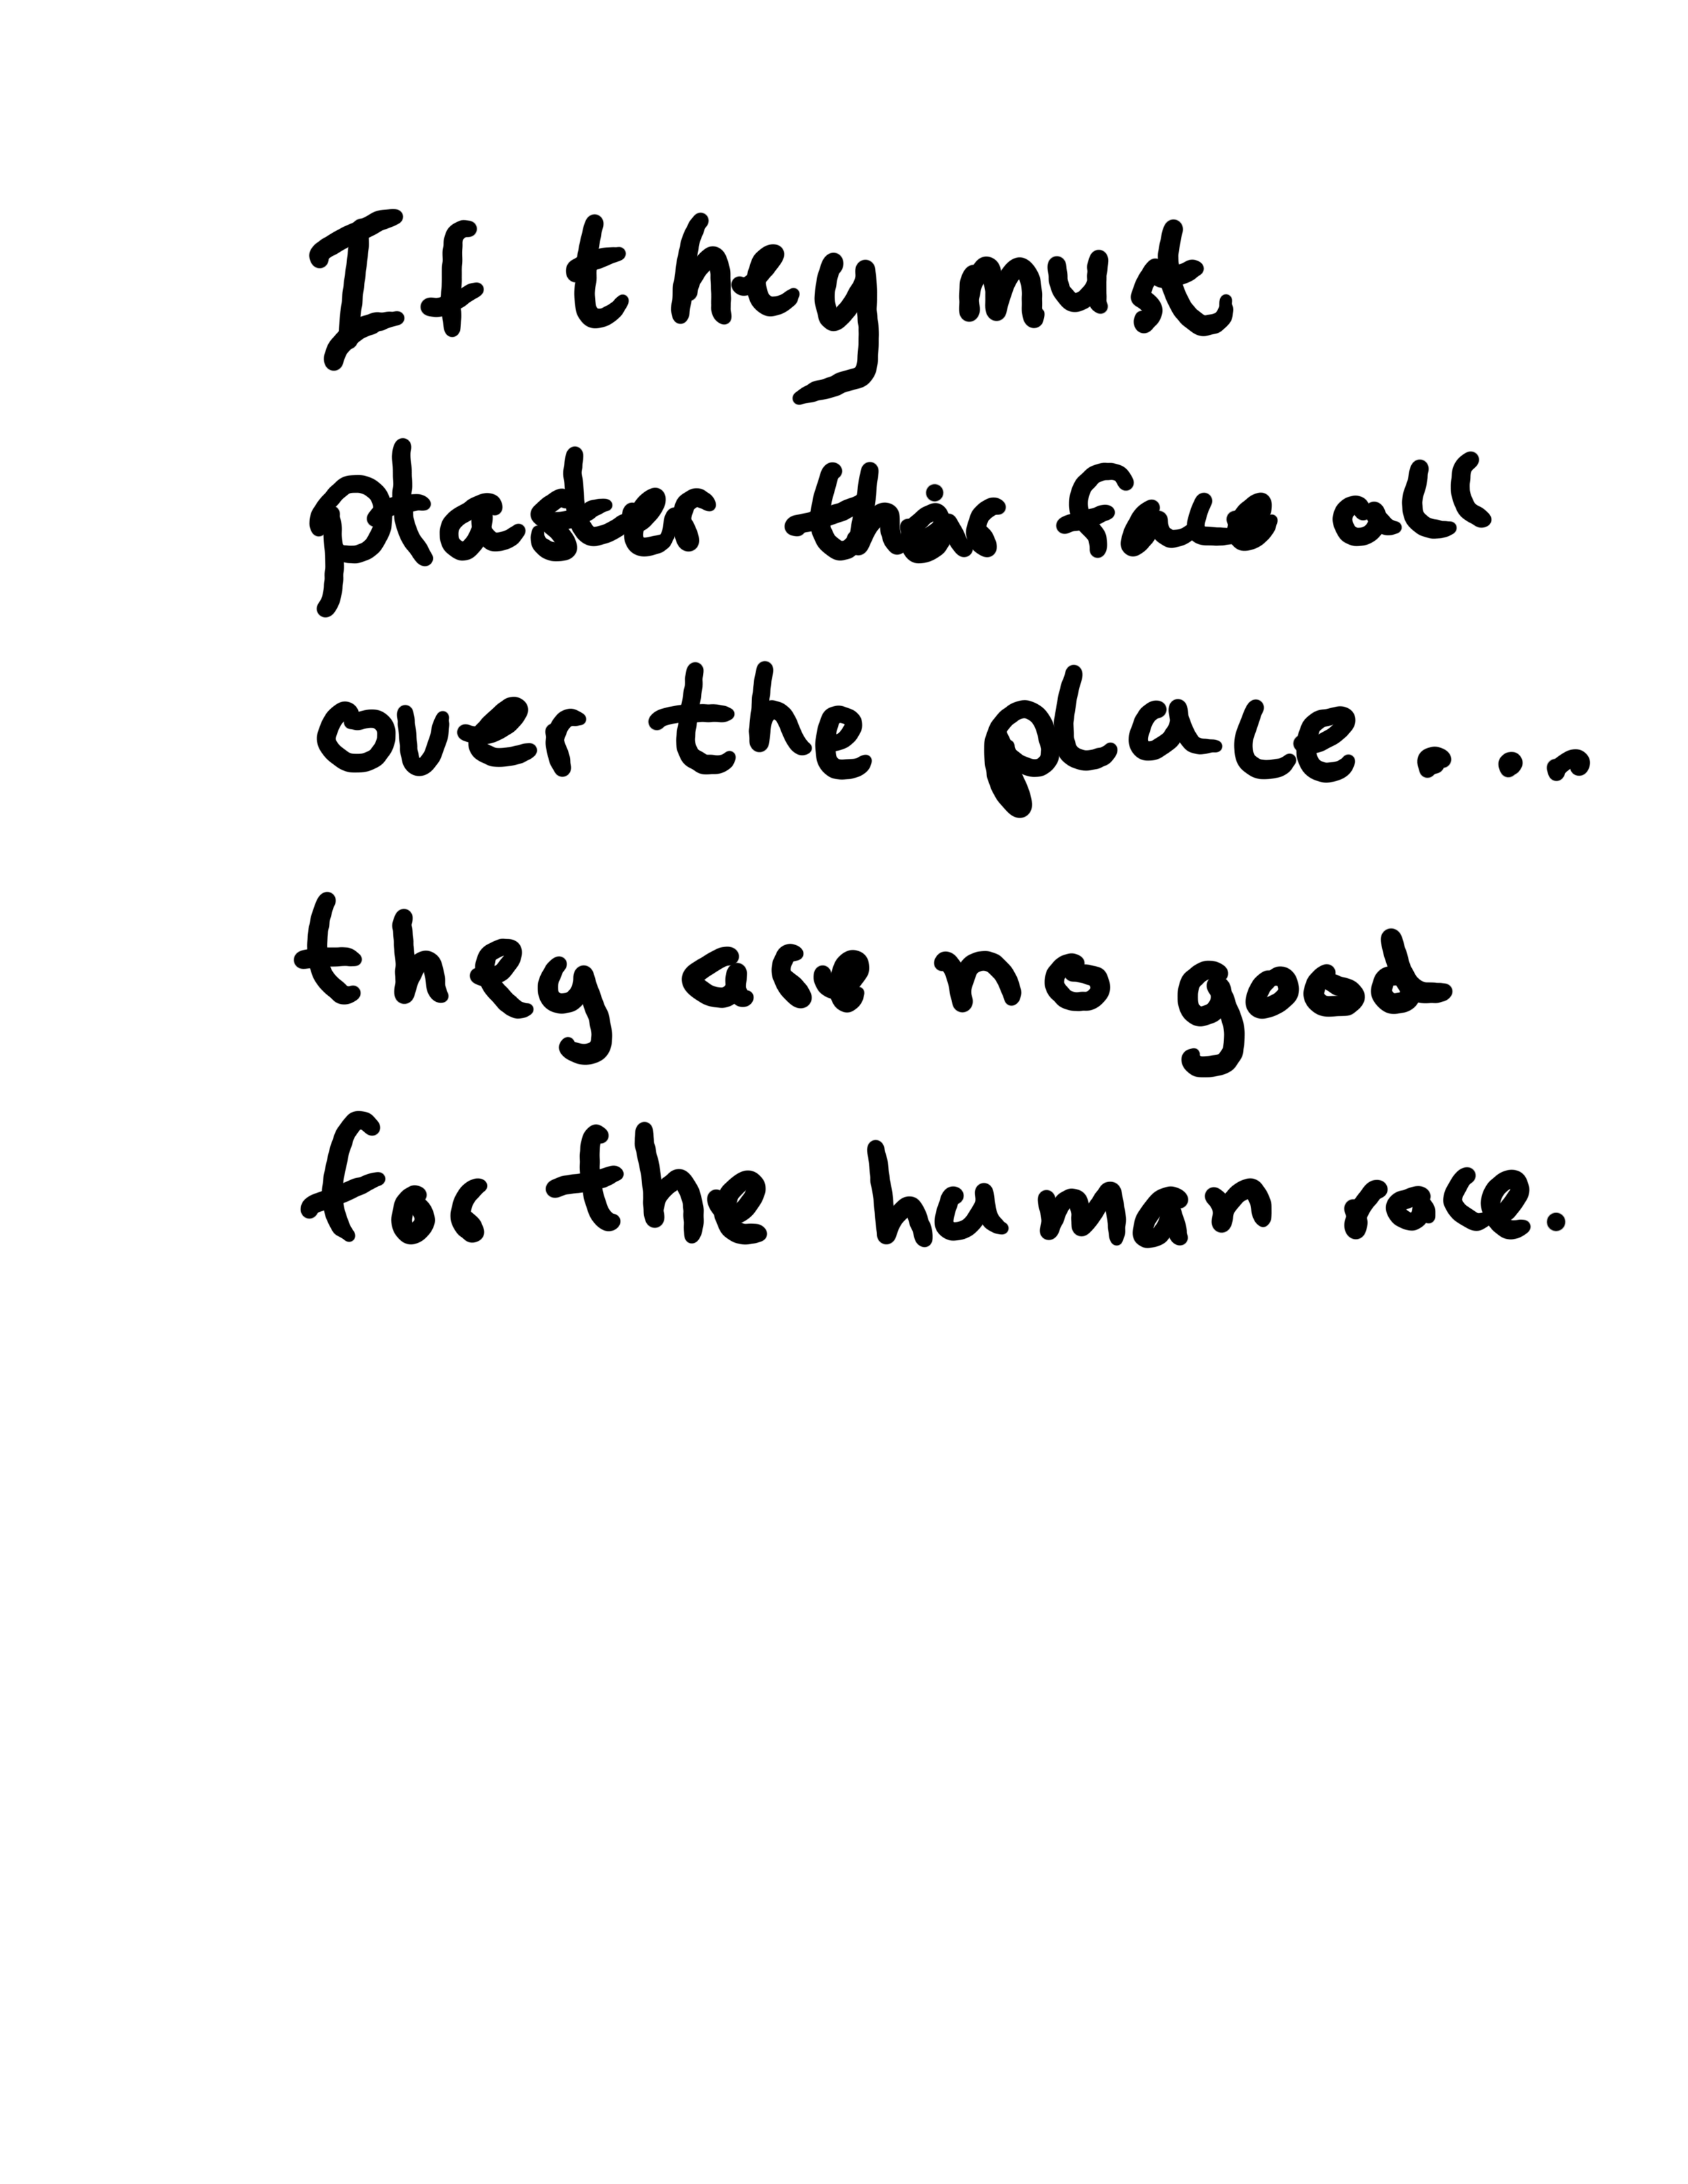 If they must
plaster this fuse all
over the place ...
they are no good
for the human race.